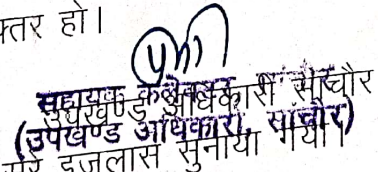 क्तर हो।
सहायक कलेक्टर
उपखण्ड अधिकारी सांचौर
(उपखण्ड अधिकारी, सांचौर)
इजलास सुनाया गया।